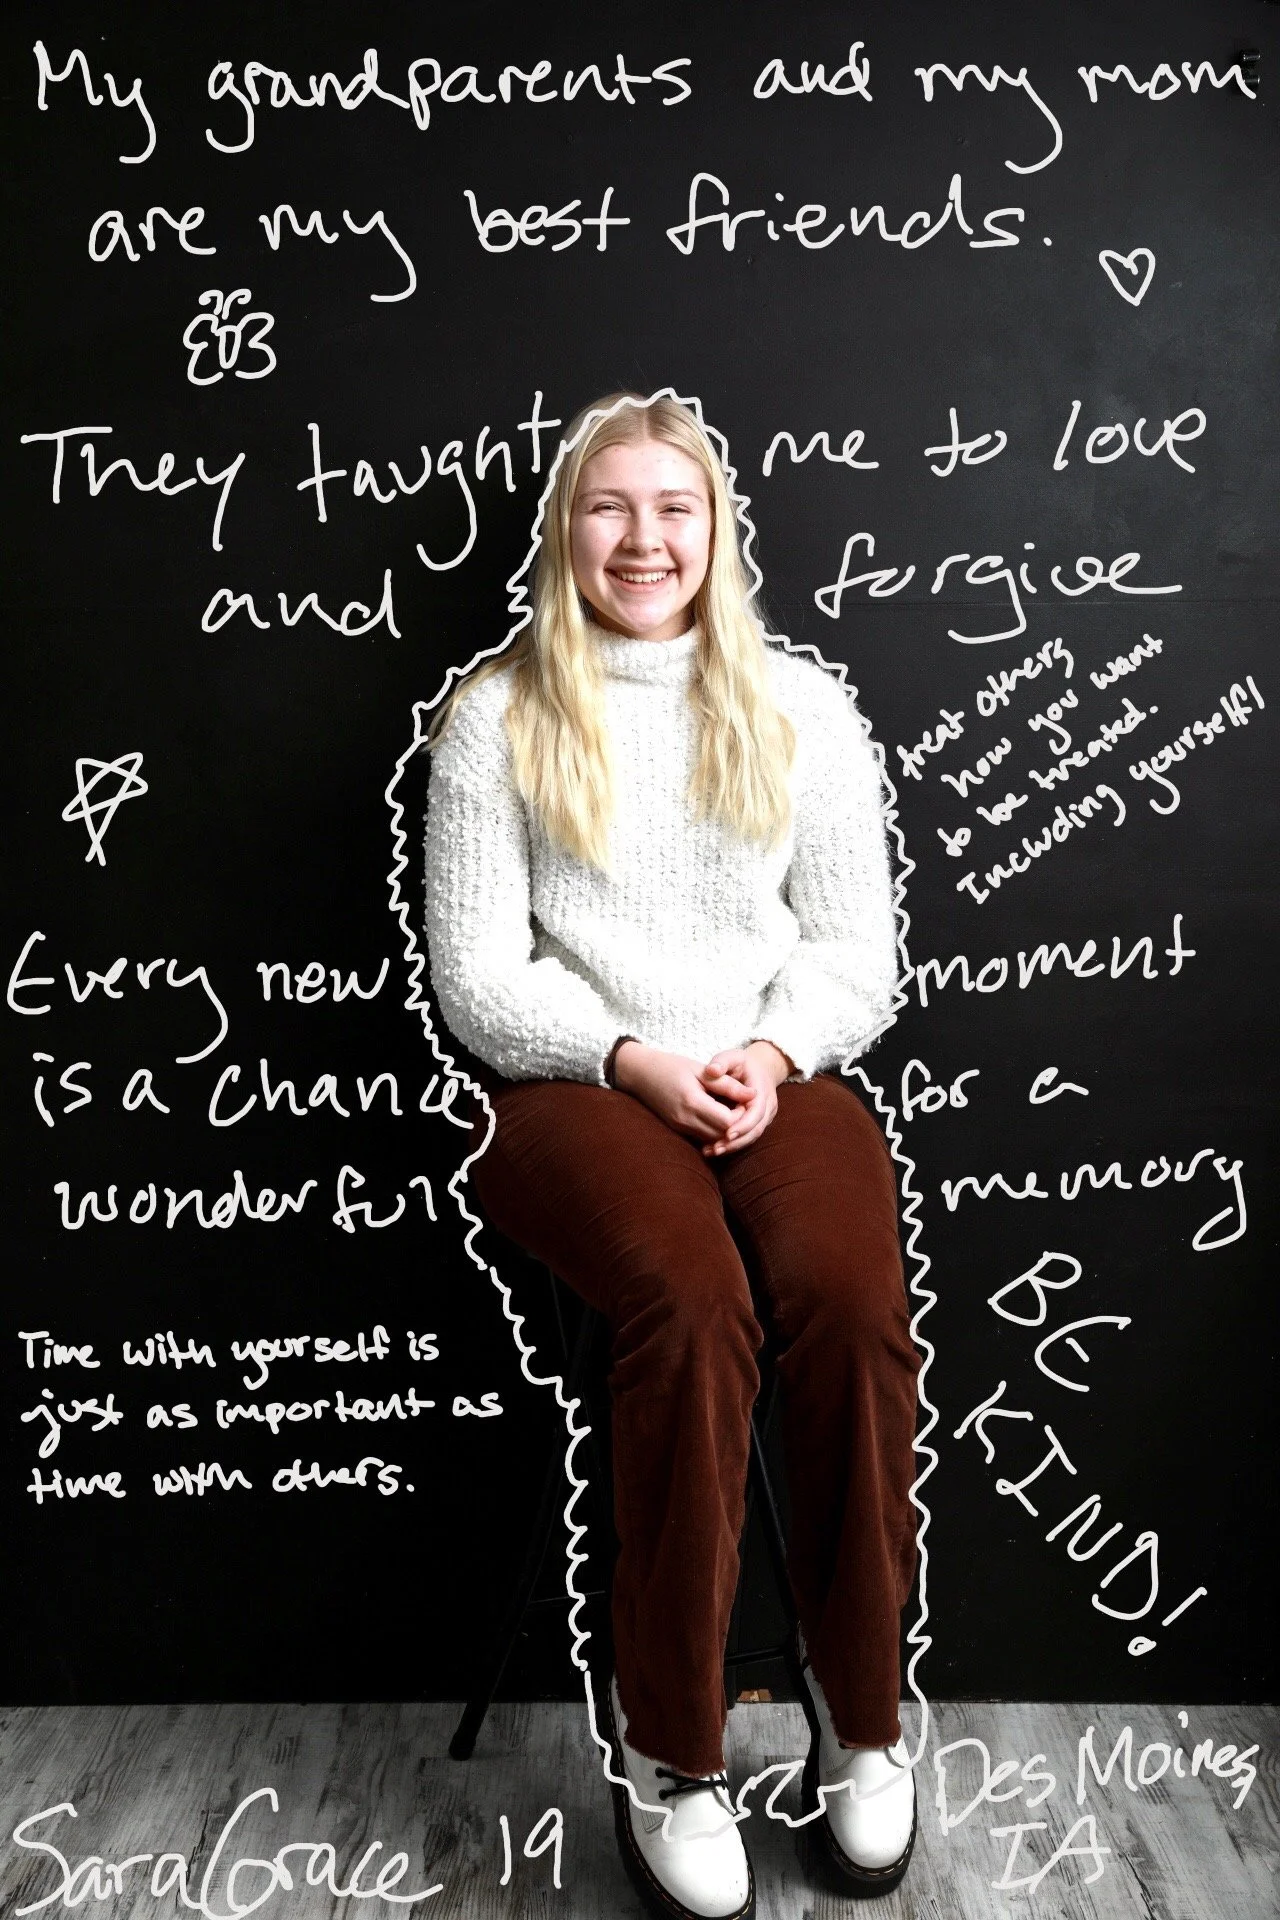 My grandparents and my mom
are my best friends.
They taught me to love
and forgive
treat others
how you want
to be treated.
Including yourself!
Every new moment
is a chance for a
wonderful memory
BE
KIND!
Time with yourself is
just as important as
time with others.
SaraGrace 19
Des Moines,
IA